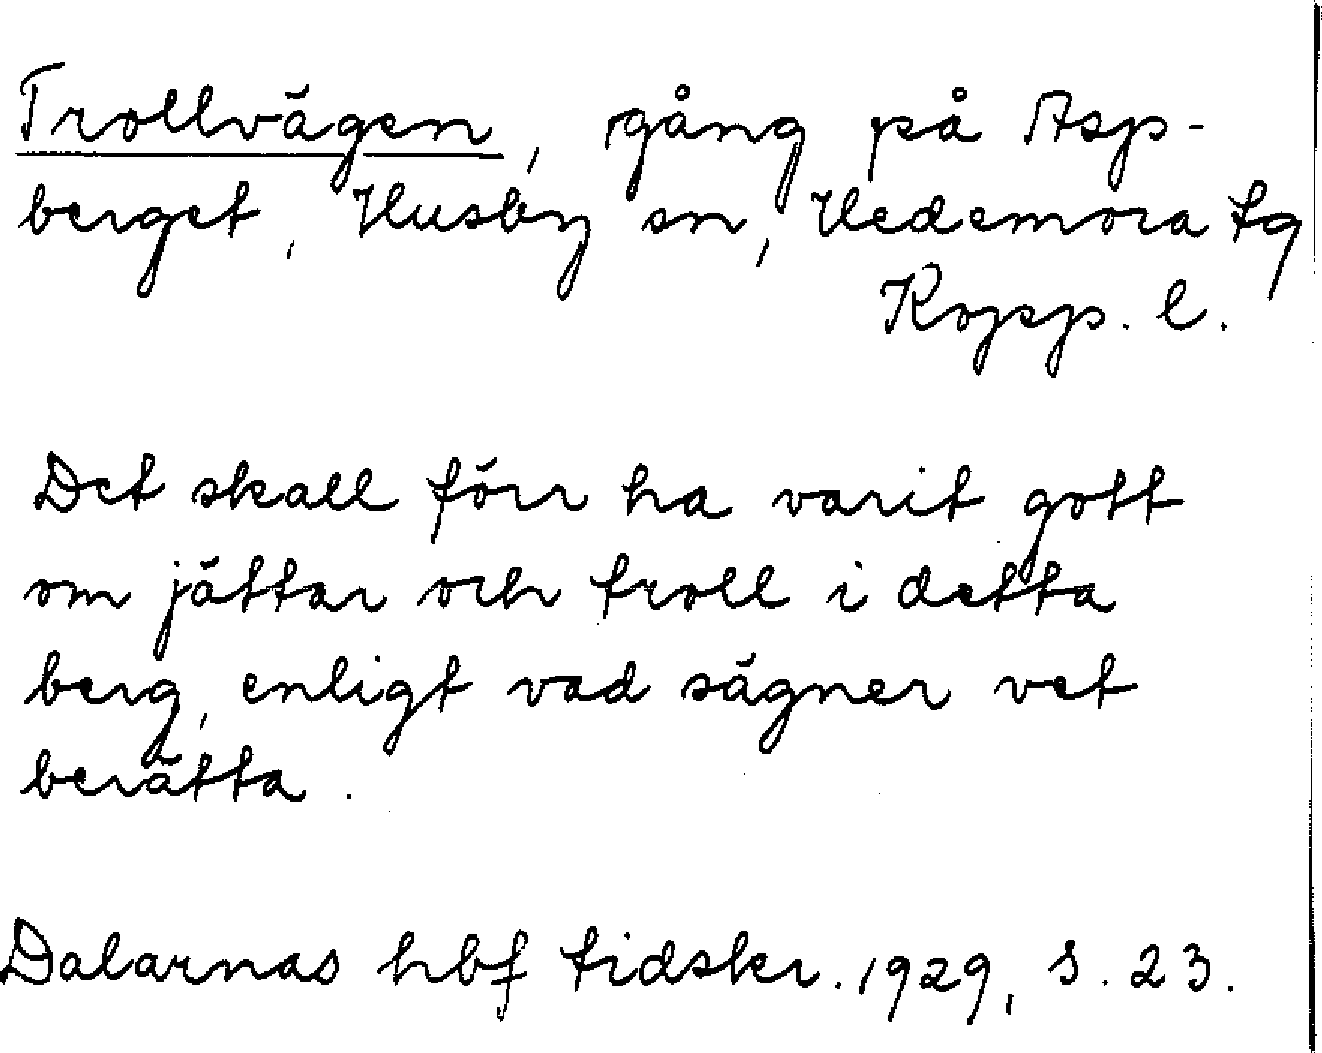 Trollvägen, gång på Asp-
berget, Husby sn, Hedemora tg
Kopp. l.
Det skall förr ha varit gott
om jättar och troll i detta
berg, enligt vad sägner vet
berätta.
Dalarnas hbf tidskr. 1929, s. 23.